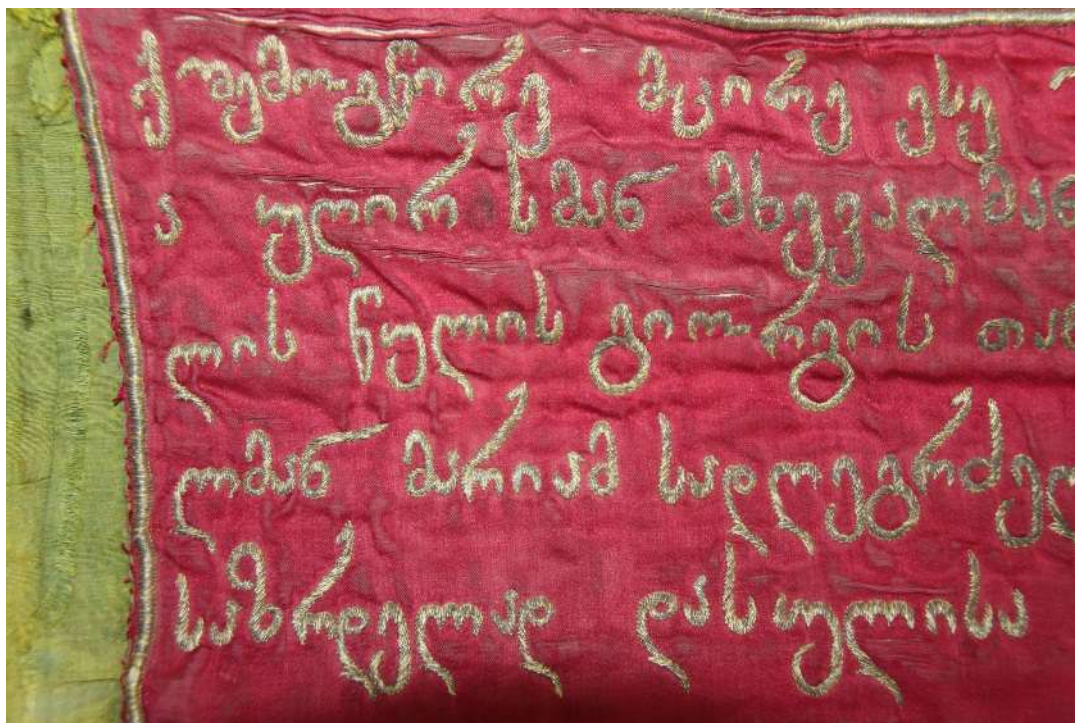 ქ შემოგწირე მცირე ესე
ა უღირსმან მხევალმან
ლის წულის გიორგის
ლმან მარიამ სადღეგრძელ
საზრდელად დასულისა